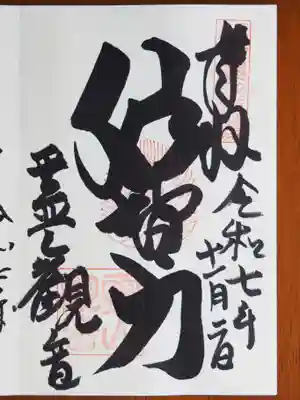 奉拝 令和七年十一月二日
妙智力
霊山観音